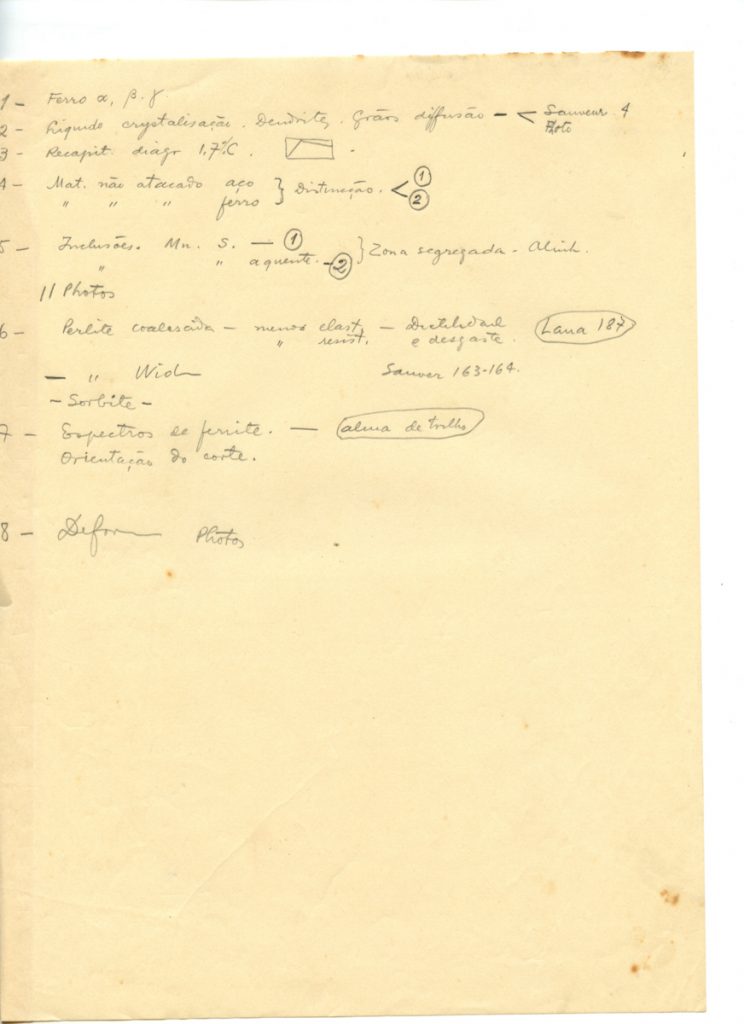 1 - Ferro α, β. γ
2 - Liquido crystalisação. Dendrites. Grãos diffusão - < Sauveur 4
Photo
3 - Recapit. diagr 1,7% C.
4 - Mat. não atacado aço } Distincção. < 1
" " " ferro 2
5 - Inclusões. Mn. S. — 1 } Zona segregada -
" " aquente. - 2
11 Photos
6 - Perlite coalescida - menos elast. - Ductilidade
" resist. e desgaste. 187
- " Wid
Sauver 163-164.
- Sorbite -
7 - Espectros de ferrite. — alma de trilho
Orientação do corte.
8 - Deform Photos